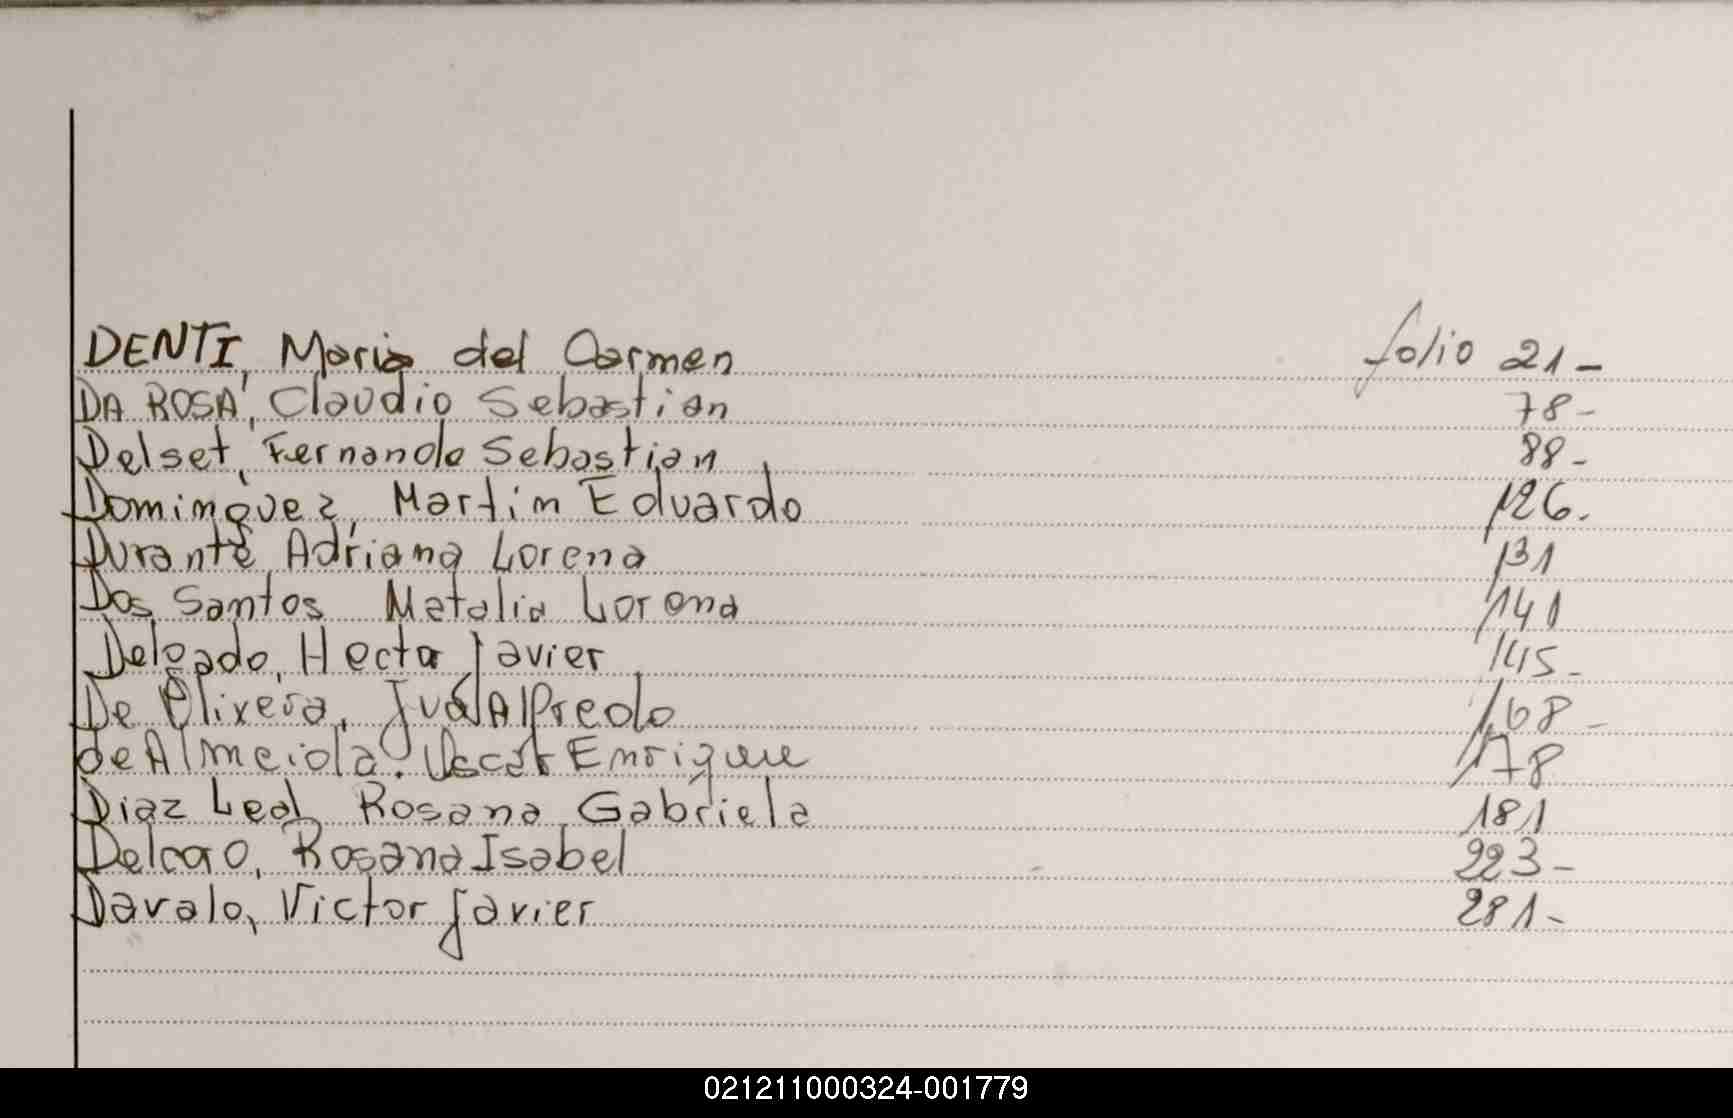 DENTI, Maria del Carmen folio 21-
DA ROSA, Claudio Sebastian 78-
Delset, Fernando Sebastian 88-
Dominguez, Martin Eduardo 126.
Durante, Adriana Lorena 131
Dos Santos Natalia Lorena 141
Delgado, Hector Javier 145-
De Olivera, Alfredo 168-
de Almeida. Oscar Enrique 178
Diaz Leal Rosana Gabriela 181
Rosana Isabel 223-
Davalo, Victor Javier 281-
021211000324-001779